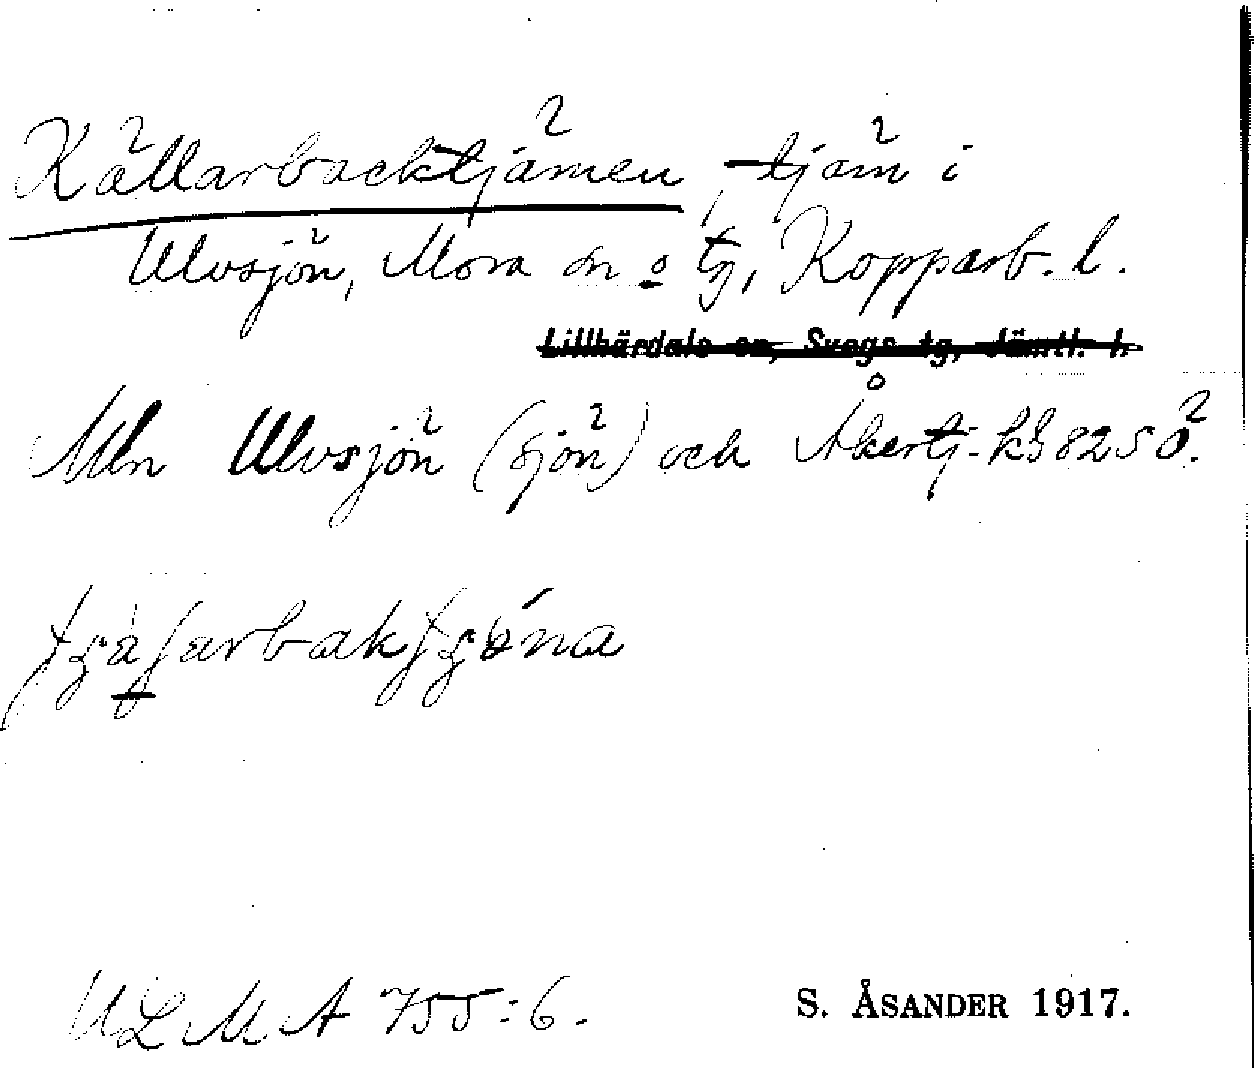 Källarbacktjärnen, tjärn i
Ulvsjön, Mora sn o tg, Kopparb. l.
Lillhärdals sn, Svegs tg, Jämtl. l.
Mln Ulvsjön (sjön) och Åkertj. k§ 825 ö.
ULMA 755:6.
S. ÅSANDER 1917.